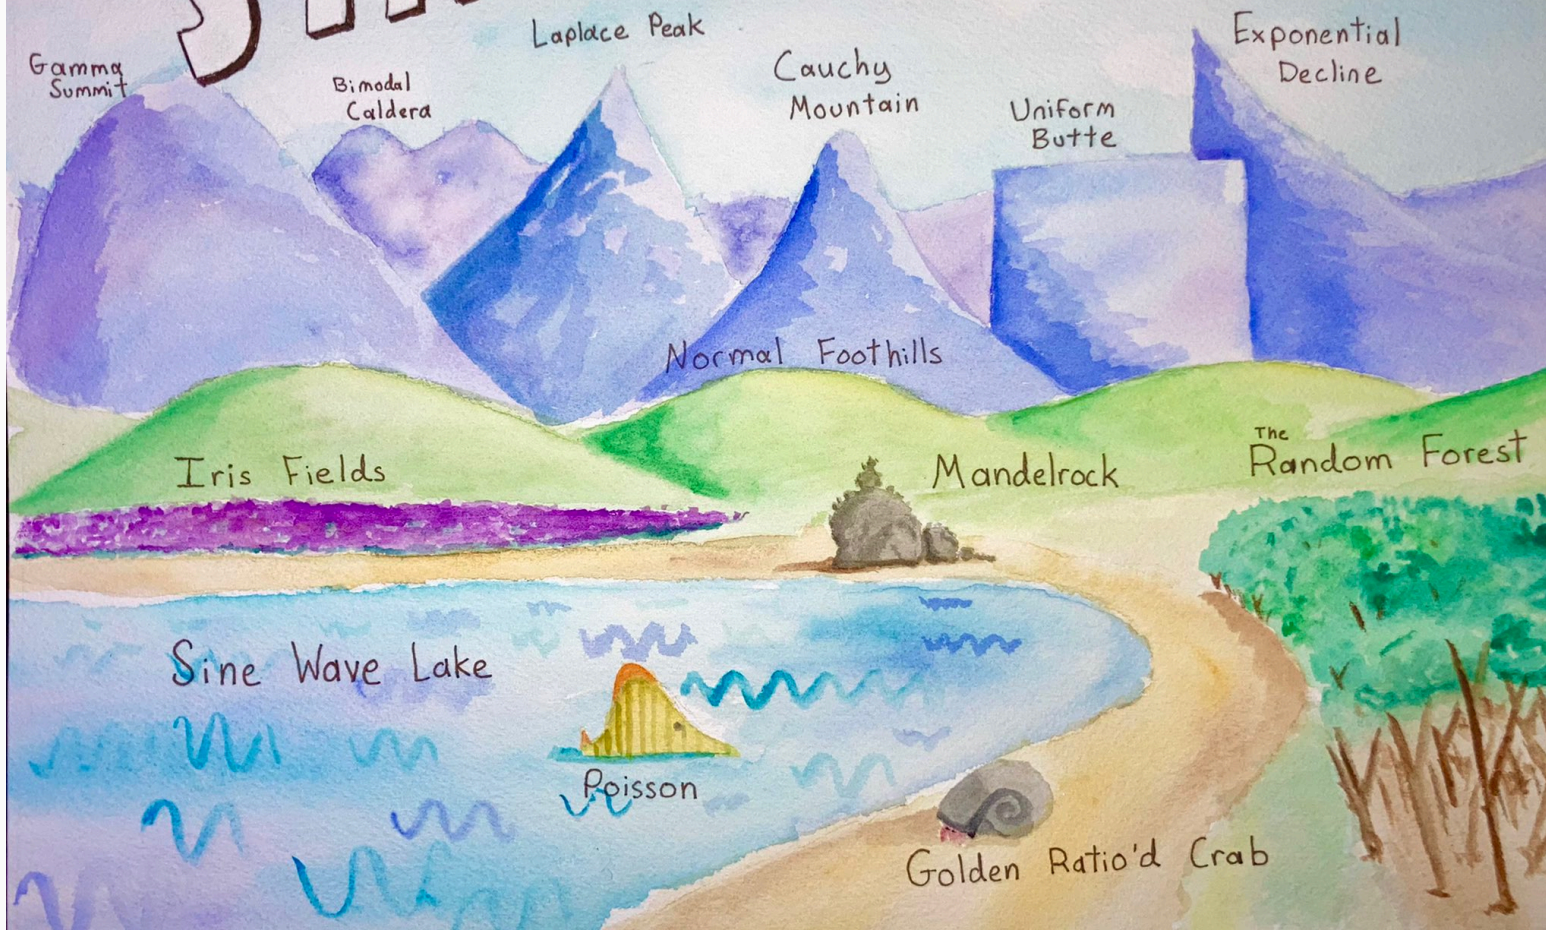 Laplace Peak
Gamma
Summit
Bimodal
Caldera
Cauchy
Mountain
Uniform
Butte
Exponential
Decline
Normal Foothills
Iris Fields
Mandelrock
The
Random Forest
Sine Wave Lake
Poisson
Golden Ratio'd Crab